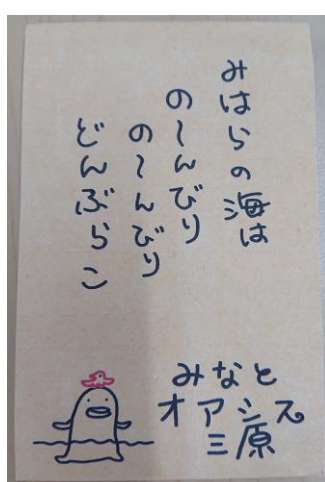 みはらの海は
の〜んびり
の〜んびり
どんぶらこ
みなと
オアシス
三原